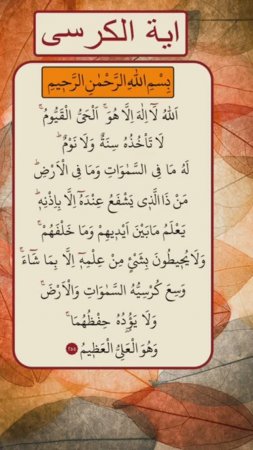 اية الكرسى
بِسْمِ اللهِ الرَّحْمٰنِ الرَّحِيمِ
اَللهُ لَآ اِلٰهَ اِلَّا هُوَۚ اَلْحَىُّ الْقَيُّومُۚ
لَا تَأْخُذُهُ سِنَةٌ وَلَا نَوْمٌۜ
لَهُ مَا فِى السَّمٰوَاتِ وَمَا فِى الْاَرْضِۜ
مَنْ ذَا الَّذِى يَشْفَعُ عِنْدَهُٓ اِلَّا بِاِذْنِهِۜ
يَعْلَمُ مَابَيْنَ اَيْدِيهِمْ وَمَا خَلْفَهُمْۚ
وَلَا يُحِيطُونَ بِشَىْءٍ مِنْ عِلْمِهِٓ اِلَّا بِمَا شَٓاءَۚ
وَسِعَ كُرْسِيُّهُ السَّمٰوَاتِ وَالْاَرْضَۚ
وَلَا يَؤُدُهُ حِفْظُهُمَاۚ
وَهُوَ الْعَلِىُّ الْعَظِيمُ ٢٥٥